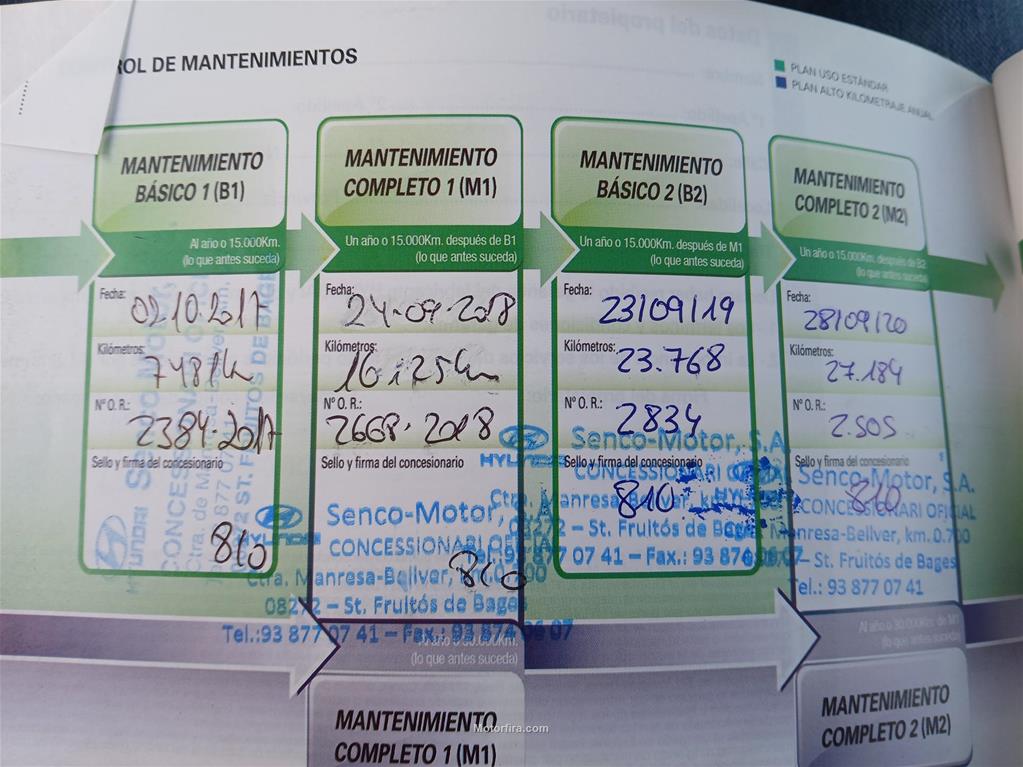 ROL DE MANTENIMIENTOS
PLAN USO ESTÁNDAR
PLAN ALTO KILOMETRAJE ANUAL
MANTENIMIENTO
BÁSICO 1 (B1)
Al año o 15.000Km.
(lo que antes suceda)
Fecha:
02.10.2017
Kilómetros:
N° O. R.:
2384-2017
Sello y firma del concesionario
810
HYUNDAI
MANTENIMIENTO
COMPLETO 1 (M1)
Un año o 15.000Km. después de B1
(lo que antes suceda)
Fecha:
24-09-2018
Kilómetros:
N° O. R.:
2668-2018
Sello y firma del concesionario
Senco-Motor, S.A.
CONCESSIONARI OFICIAL
810
Ctra. Manresa-Bellver, km.0.700
08272 – St. Fruitós de Bages
Tel.:93 877 07 41 – Fax.: 93 874 06 07
MANTENIMIENTO
BÁSICO 2 (B2)
Un año o 15.000Km. después de M1
(lo que antes suceda)
Fecha:
23/09/19
Kilómetros:
23.768
N° O. R.:
2834
Sello y firma del concesionario
HYUNDAI
Senco-Motor, S.A.
CONCESSIONARI OFICIAL
810
Ctra. Manresa-Bellver, km.
08272 – St. Fruitós de Bages
Tel.: 93 877 07 41 – Fax.: 93 874 06 07
MANTENIMIENTO
COMPLETO 2 (M2)
Un año o 15.000Km. después de B2
(lo que antes suceda)
Fecha:
28/09/20
Kilómetros:
27.184
N° O. R.:
2.505
Sello y firma del concesionario
Senco-Motor, S.A.
810
CONCESSIONARI OFICIAL
Manresa-Bellver, km.0.700
St. Fruitós de Bages
Tel.: 93 877 07 41
Al año o 30.000Km.
(lo que antes suceda)
MANTENIMIENTO
COMPLETO 1 (M1)
Al año o 30.000Km. de M1
(lo que antes suceda)
MANTENIMIENTO
COMPLETO 2 (M2)
Motorfira.com